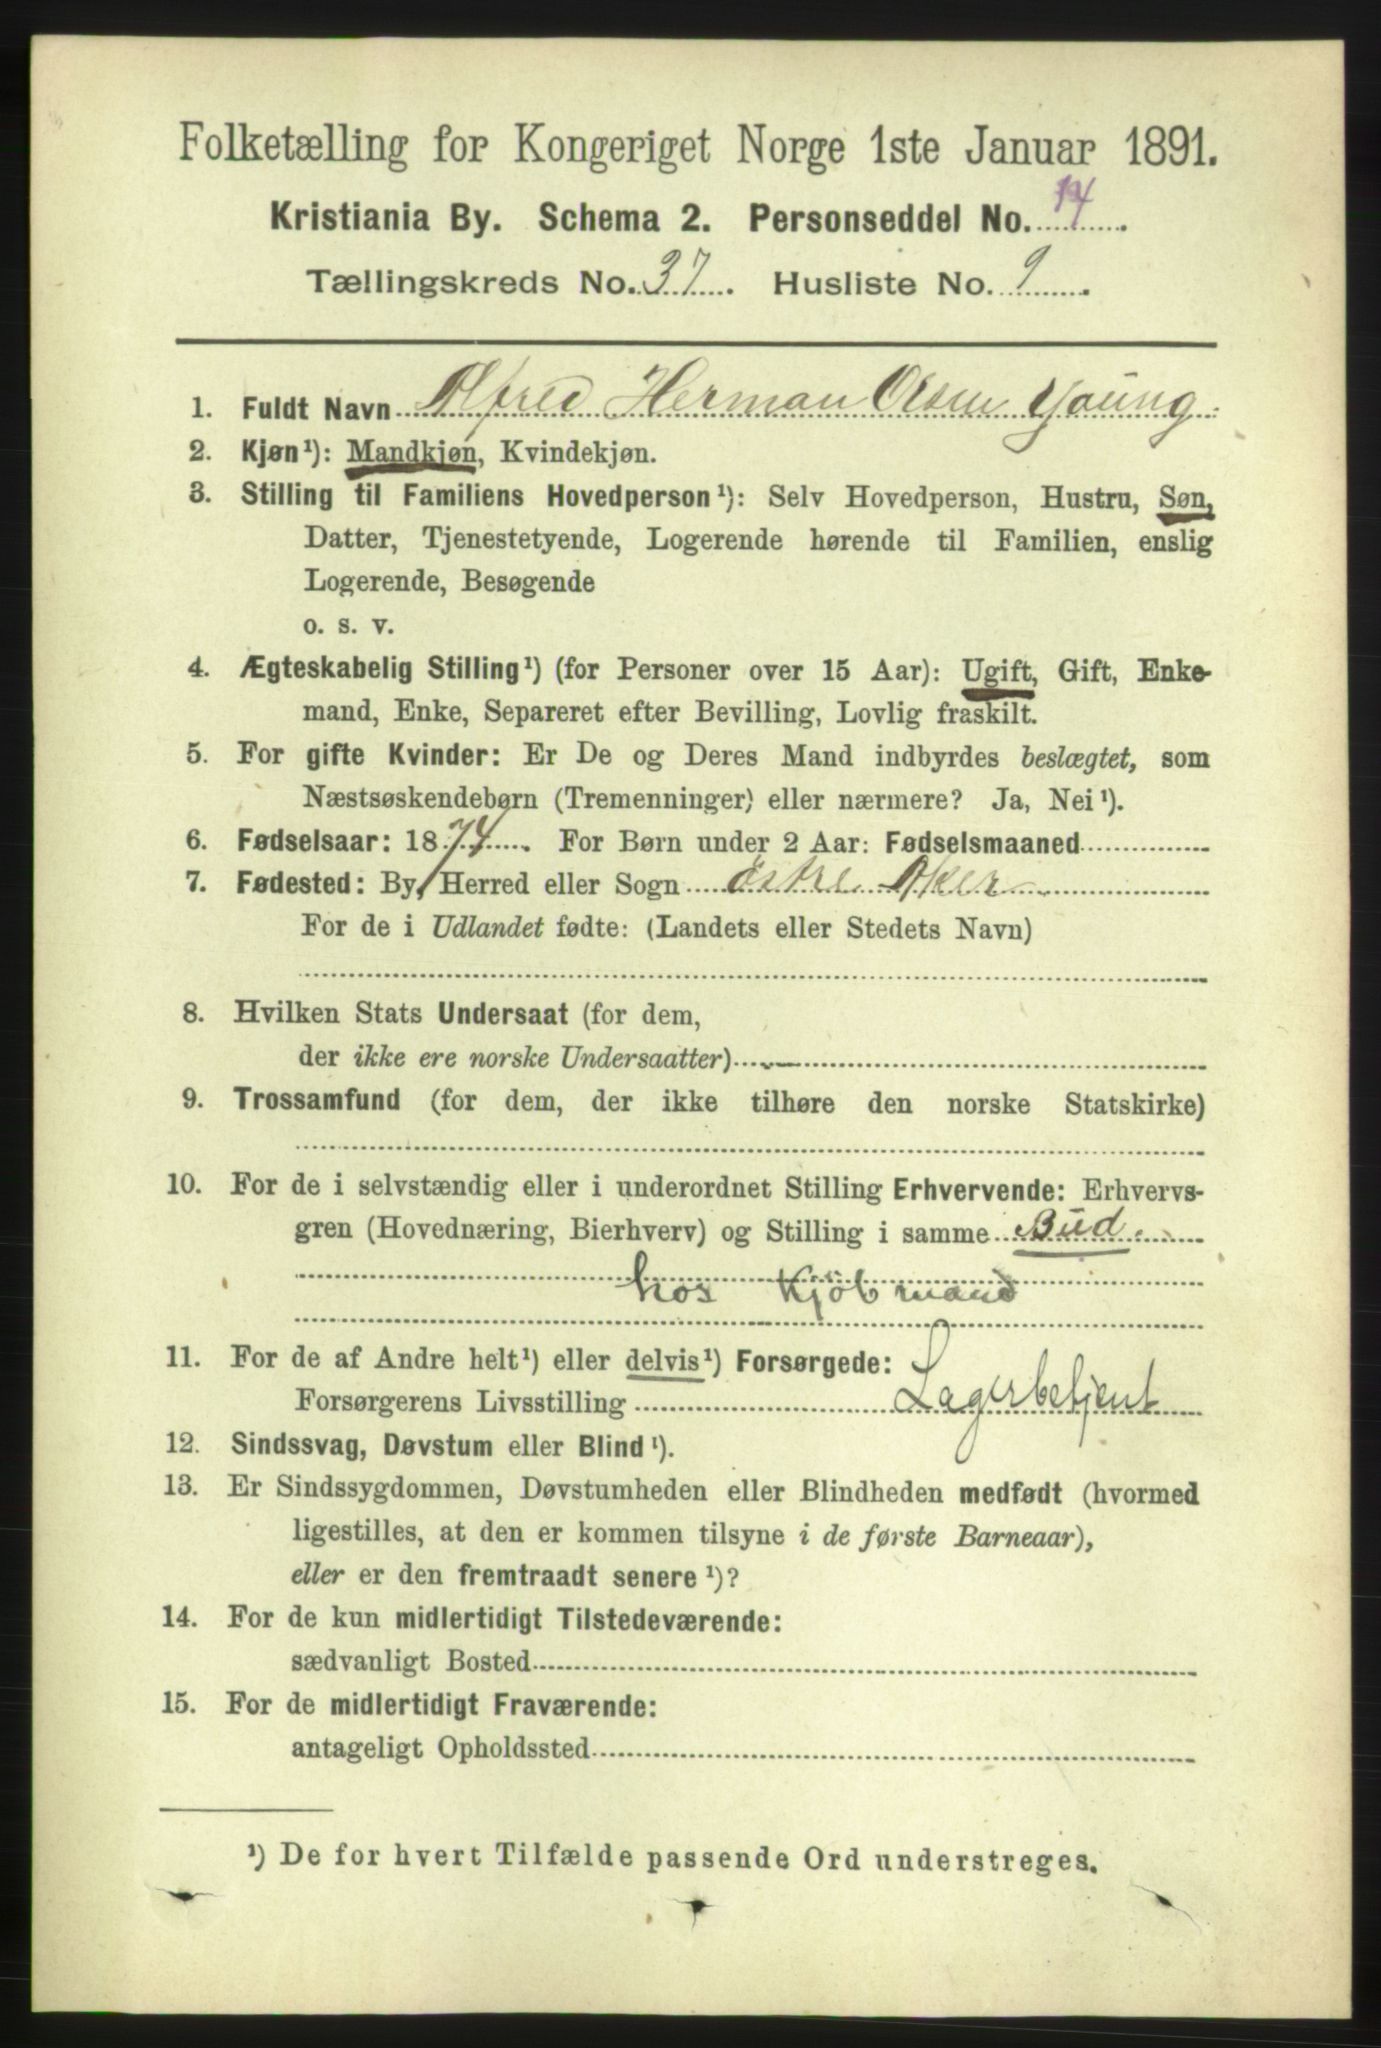 Folketælling for Kongeriget Norge 1ste Januar 1891.
Kristiania By. Schema 2. Personseddel No. 14.
Tællingskreds No. 37. Husliste No. 9.
1. Fuldt Navn Alfred Herman Olsen Young
2. Kjøn¹): Mandkjøn, Kvindekjøn.
3. Stilling til Familiens Hovedperson¹): Selv Hovedperson, Hustru, Søn,
Datter, Tjenestetyende, Logerende hørende til Familien, enslig
Logerende, Besøgende
o. s. v.
4. Ægteskabelig Stilling¹) (for Personer over 15 Aar): Ugift, Gift, Enke-
mand, Enke, Separeret efter Bevilling, Lovlig fraskilt.
5. For gifte Kvinder: Er De og Deres Mand indbyrdes beslægtet, som
Næstsøskendebørn (Tremenninger) eller nærmere? Ja, Nei¹).
6. Fødselsaar: 1874. For Børn under 2 Aar: Fødselsmaaned
7. Fødested: By, Herred eller Sogn østre Aker
For de i Udlandet fødte: (Landets eller Stedets Navn)
8. Hvilken Stats Undersaat (for dem,
der ikke ere norske Undersaatter)
9. Trossamfund (for dem, der ikke tilhøre den norske Statskirke)
10. For de i selvstændig eller i underordnet Stilling Erhvervende: Erhvervs-
gren (Hovednæring, Bierhverv) og Stilling i samme Bud.
hos Kjøbmand
11. For de af Andre helt¹) eller delvis¹) Forsørgede:
Forsørgerens Livsstilling Lagerbetjent
12. Sindssvag, Døvstum eller Blind¹).
13. Er Sindssygdommen, Døvstumheden eller Blindheden medfødt (hvormed
ligestilles, at den er kommen tilsyne i de første Barneaar),
eller er den fremtraadt senere¹)?
14. For de kun midlertidigt Tilstedeværende:
sædvanligt Bosted
15. For de midlertidigt Fraværende:
antageligt Opholdssted
¹) De for hvert Tilfælde passende Ord understreges.